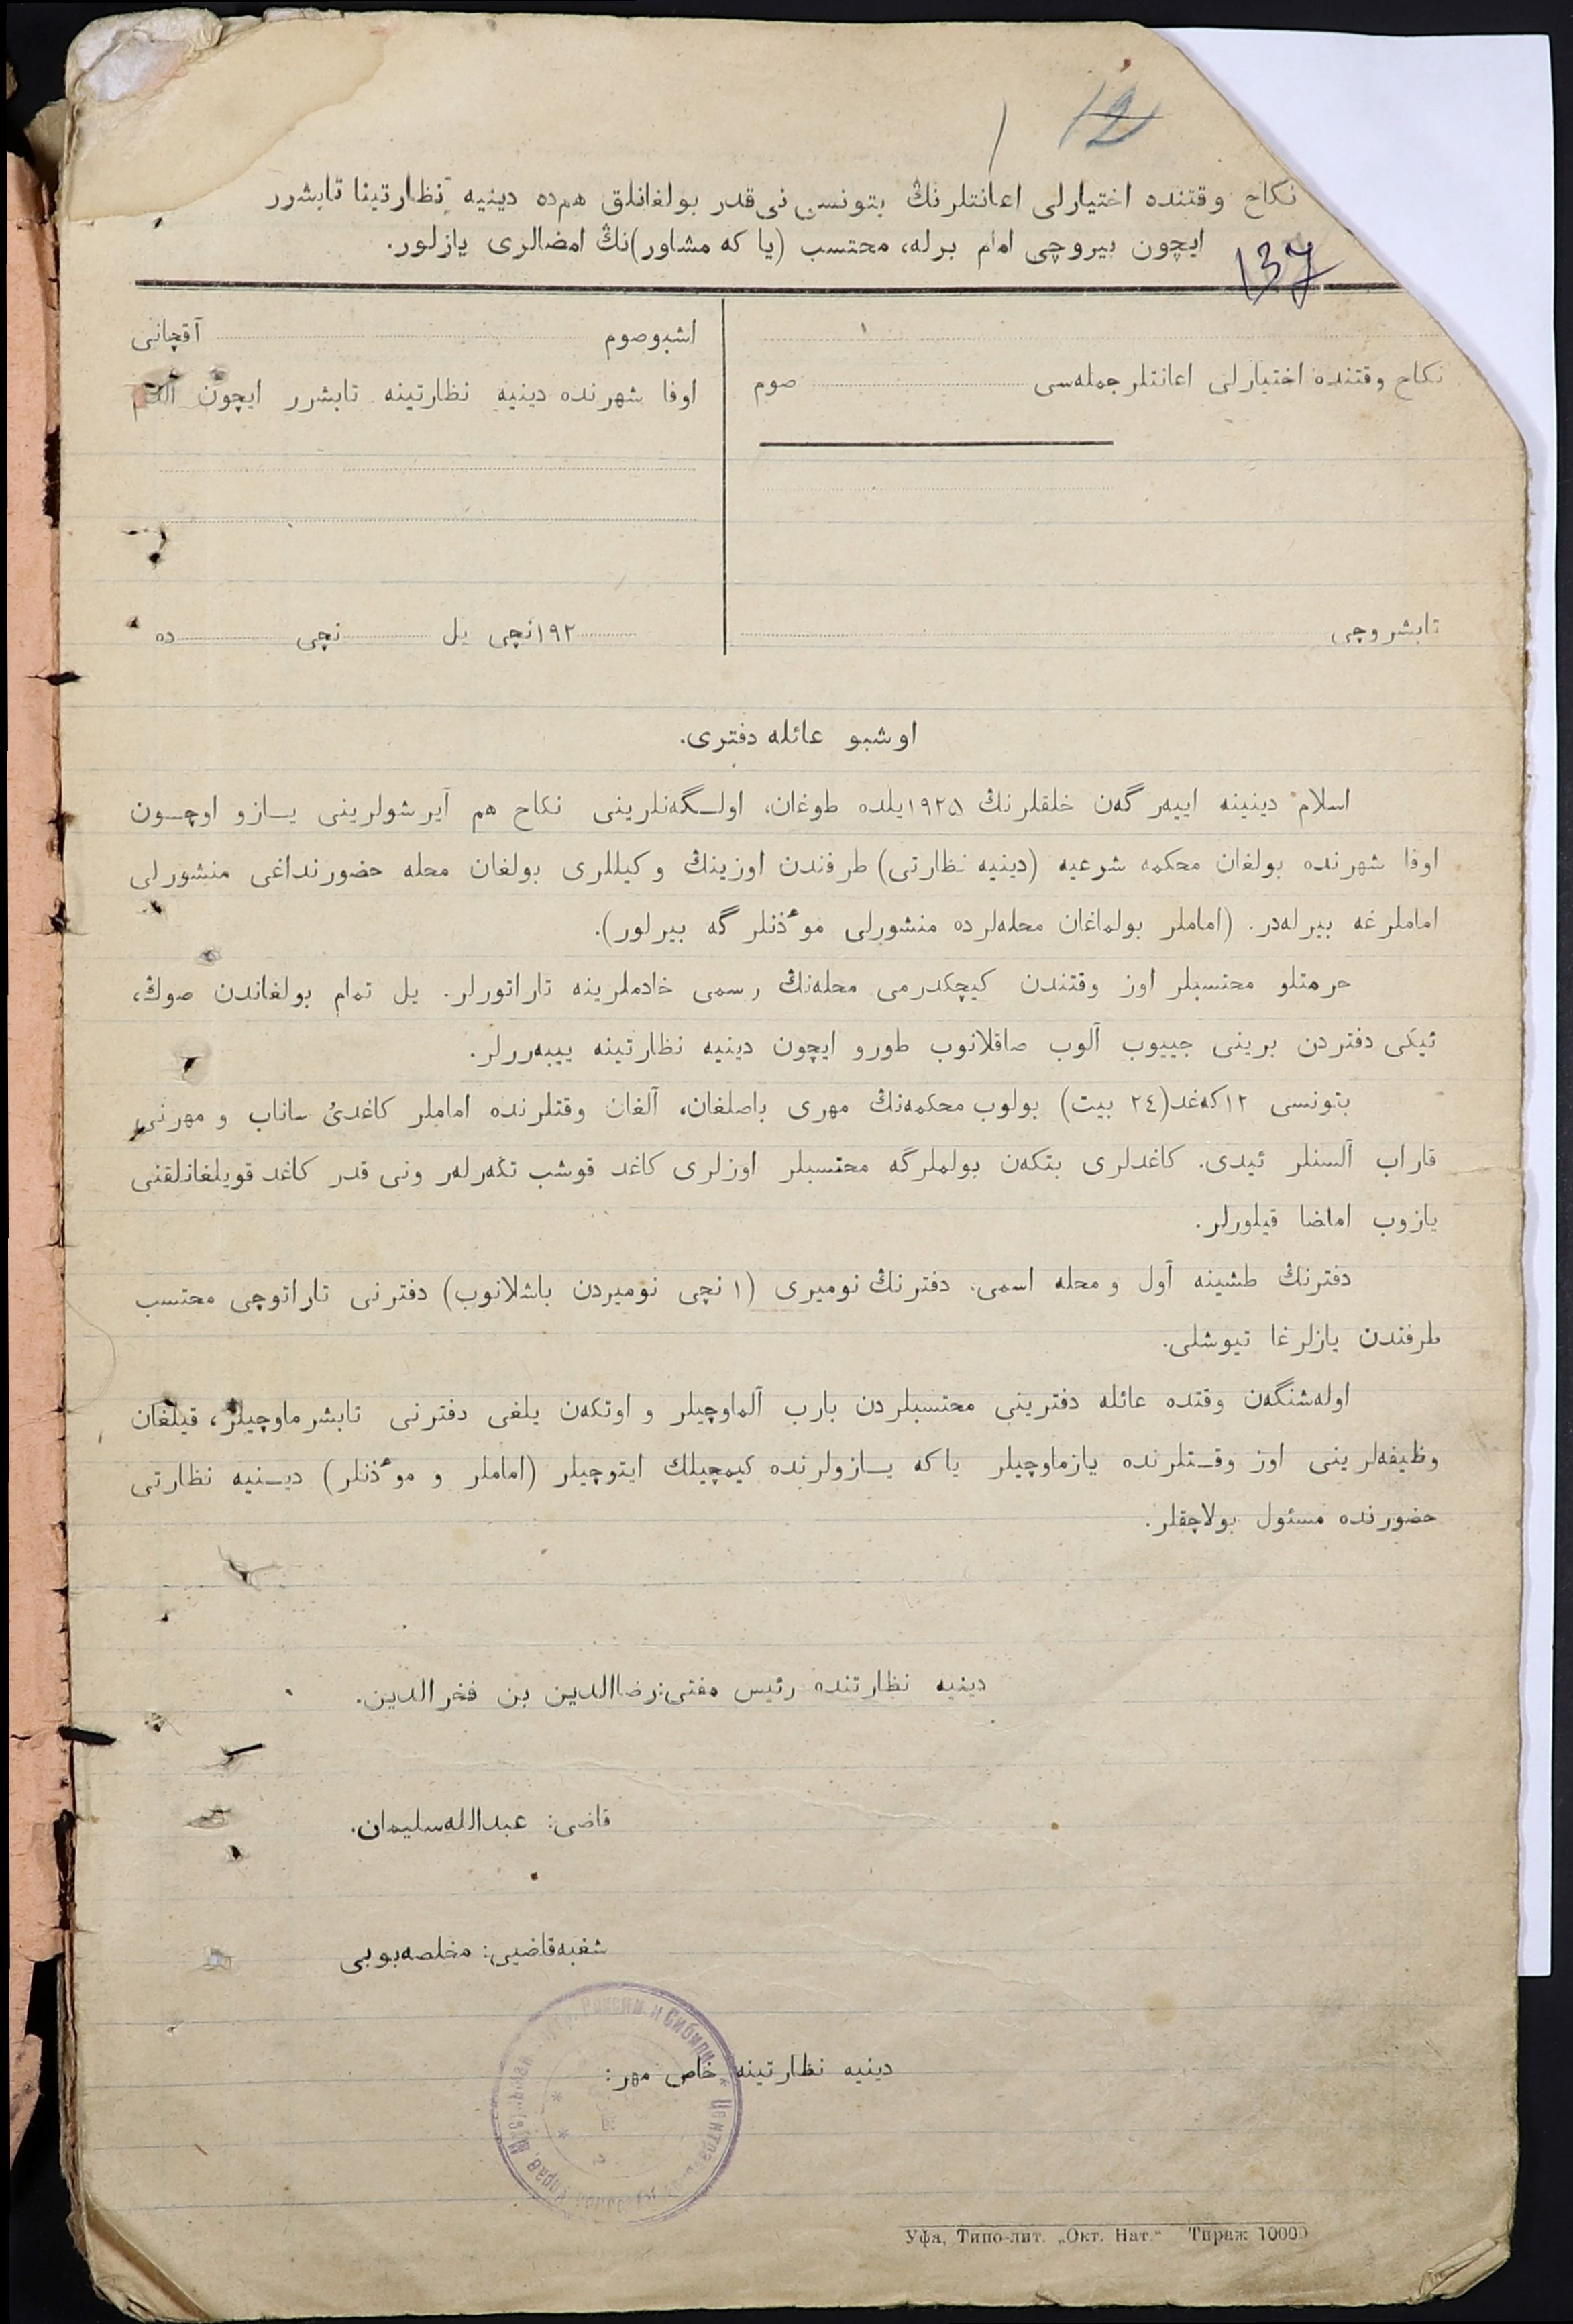 12
137
نكاح وقتنده اختيارلى اعانتلرنڭ بتونسى نى قدر بولغانلق هم‌ده دينيه نظارتينا تابشرر
ايچون بيروچى امام برله، محتسب (يا كه مشاور)نڭ امضالرى يازلور.
نكاح وقتنده اختيارلى اعانتلر جمله‌سى صوم
تابشروچى
اشبو صوم آقچانى
اوفا شهرنده دينيه نظارتينه تابشرر ايچون
١٩٢ نچى يل نچى ده
اوشبو عائله دفترى.
اسلام دينينه اييه‌رگه‌ن خلقلرنڭ ١٩٢٥ يلده طوغان، اولـگه‌نلرينى نكاح هم آيرشولرينى يـازو اوچـون
اوفا شهرنده بولغان محكمه شرعيه (دينيه نظارتى) طرفندن اوزينڭ وكيللرى بولغان محله حضورنداغى منشورلى
اماملرغه بيرله‌در. (اماملر بولماغان محله‌لرده منشورلى موٴذنلرگه بيرلور).
حرمتلو محتسبلر اوز وقتندن كيچكدرمى محله‌نڭ رسمى خادملرينه تاراتورلر. يل تمام بولغاندن صوڭ،
ئيكى دفتردن برينى جييوب آلوب صاقلانوب طورو ايچون دينيه نظارتينه ييبه‌ررلر.
بتونسى ١٢ كه‌غد(٢٤ بيت) بولوب محكمه‌نڭ مهرى باصلغان، آلغان وقتلرنده اماملر كاغدىُ ساناب و مهرنى
قاراب آلسنلر ئيدى. كاغدلرى بتكه‌ن بولملرگه محتسبلر اوزلرى كاغد قوشب تكه‌رله‌ر ونى قدر كاغد قويلغانلقنى
يازوب اماضا قيلورلر.
دفترنڭ طشينه آول و محله اسمى. دفترنڭ نوميرى (١ نچى نوميردن باشلانوب) دفترنى تاراتوچى محتسب
طرفندن يازلرغا تيوشلى.
اوله‌شنگه‌ن وقتده عائله دفترينى محتسبلردن بارب آلماوچيلر و اوتكه‌ن يلغى دفترنى تابشرماوچيلر، قيلغان
وظيفه‌لرينى اوز وقـتلرنده يازماوچيلر ياكه يـازولرنده كيمچيلك ايتوچيلر (اماملر و موٴذنلر) ديـنيه نظارتى
حضورنده مسئول بولاچقلر.
دينيه نظارتنده رئيس مفتى: رضاالدين بن فخرالدين.
قاضى: عبدالله سليمان.
شغبه قاضيى: مخلصه بوبى
دينيه نظارتينه خاص مهر:
России и Сибири
Уфа, Типо-лит. „Окт. Нат.“ Тираж 10000